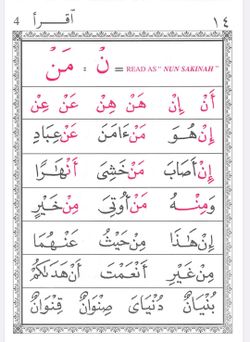 4 اقرأ ١٤
مَنْ : نْ = READ AS " NUN SAKINAH "
أَنْ إِنْ هَنْ هِنْ عَنْ عِنْ
إِنْ هُوَ مَنْ ءَامَنَ عَنْ عِبَادِ
إِنْ أَصَابَ مَنْ خَشِىَ أَنْهَٰرًا
وَمِنْهُ مَنْ أُوتِىَ مِنْ خَيْرٍ
إِنْ هَٰذَا مِنْ حَيْثُ عَنْهُمَا
مِنْ غَيْرِ أَنْعَمْتَ أَنْ هَدَىٰكُمْ
بُنْيَانٌ دُنْيَاىَ صِنْوَانٌ قِنْوَانٌ